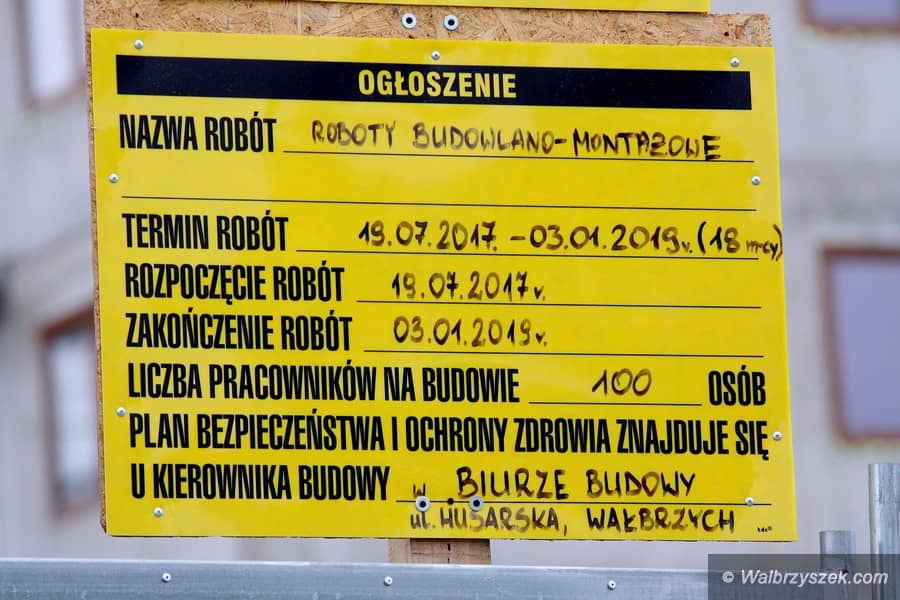 OGŁOSZENIE
NAZWA ROBÓT ROBOTY BUDOWLANO-MONTAŻOWE
TERMIN ROBÓT 19.07.2017. - 03.01.2019r. (18 m-cy)
ROZPOCZĘCIE ROBÓT 19.07.2017r.
ZAKOŃCZENIE ROBÓT 03.01.2019r.
LICZBA PRACOWNIKÓW NA BUDOWIE 100 OSÓB
PLAN BEZPIECZEŃSTWA I OCHRONY ZDROWIA ZNAJDUJE SIĘ
U KIEROWNIKA BUDOWY w BIURZE BUDOWY
ul. HUSARSKA, WAŁBRZYCH
© Walbrzyszek.com